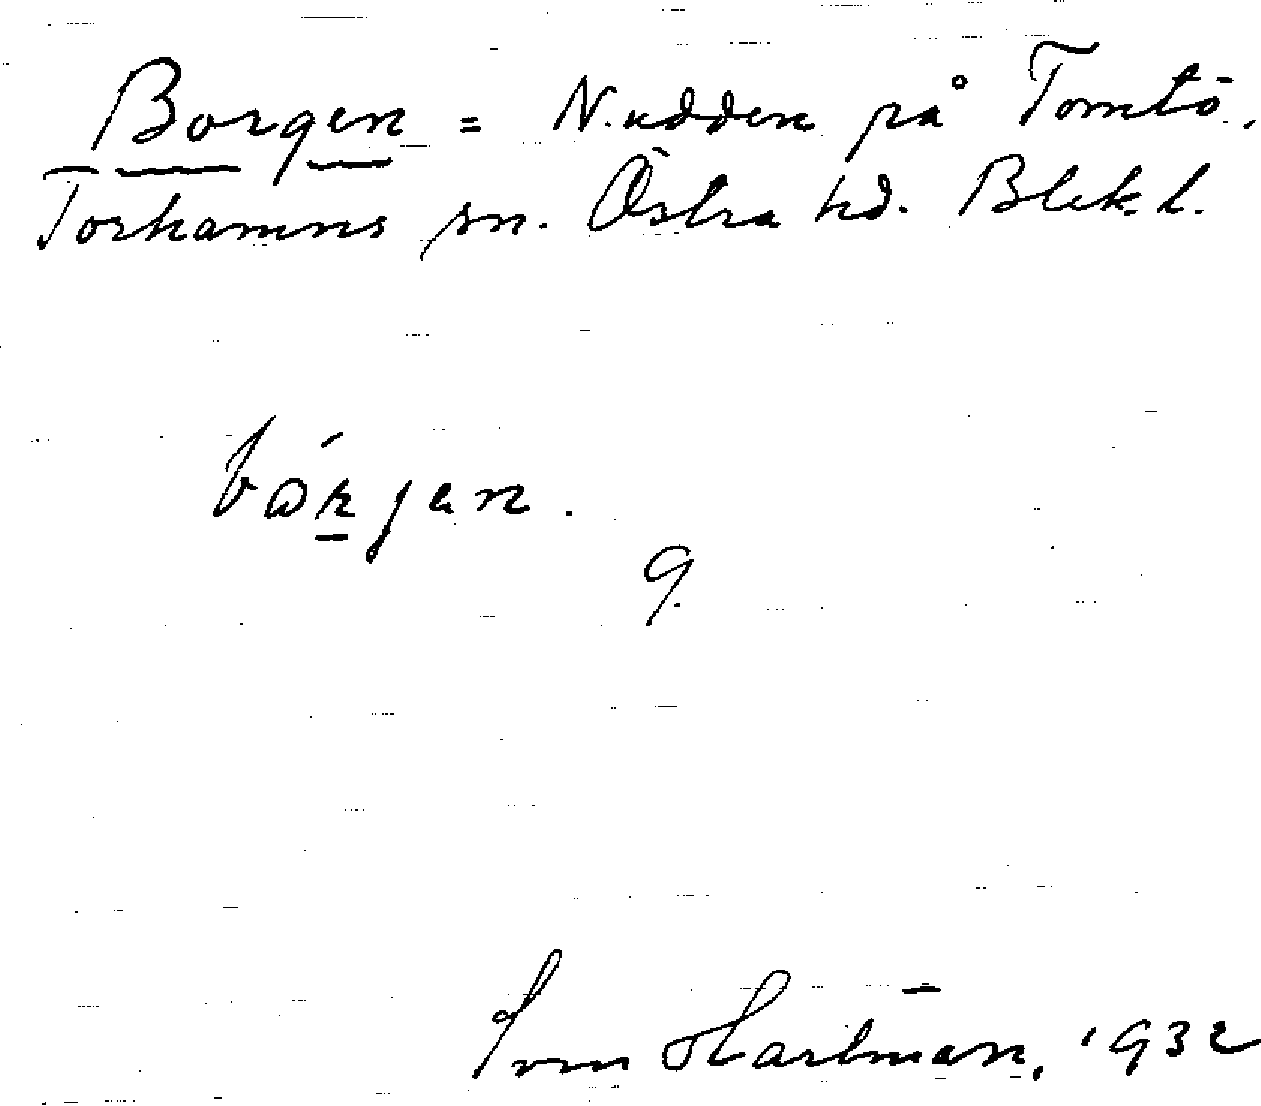 Borgen = N. udden på Tomtö.
Torhamns sn. Östra hd. Blek. l.
bɷ́rjen.
9.
Sven Hartman, 1932